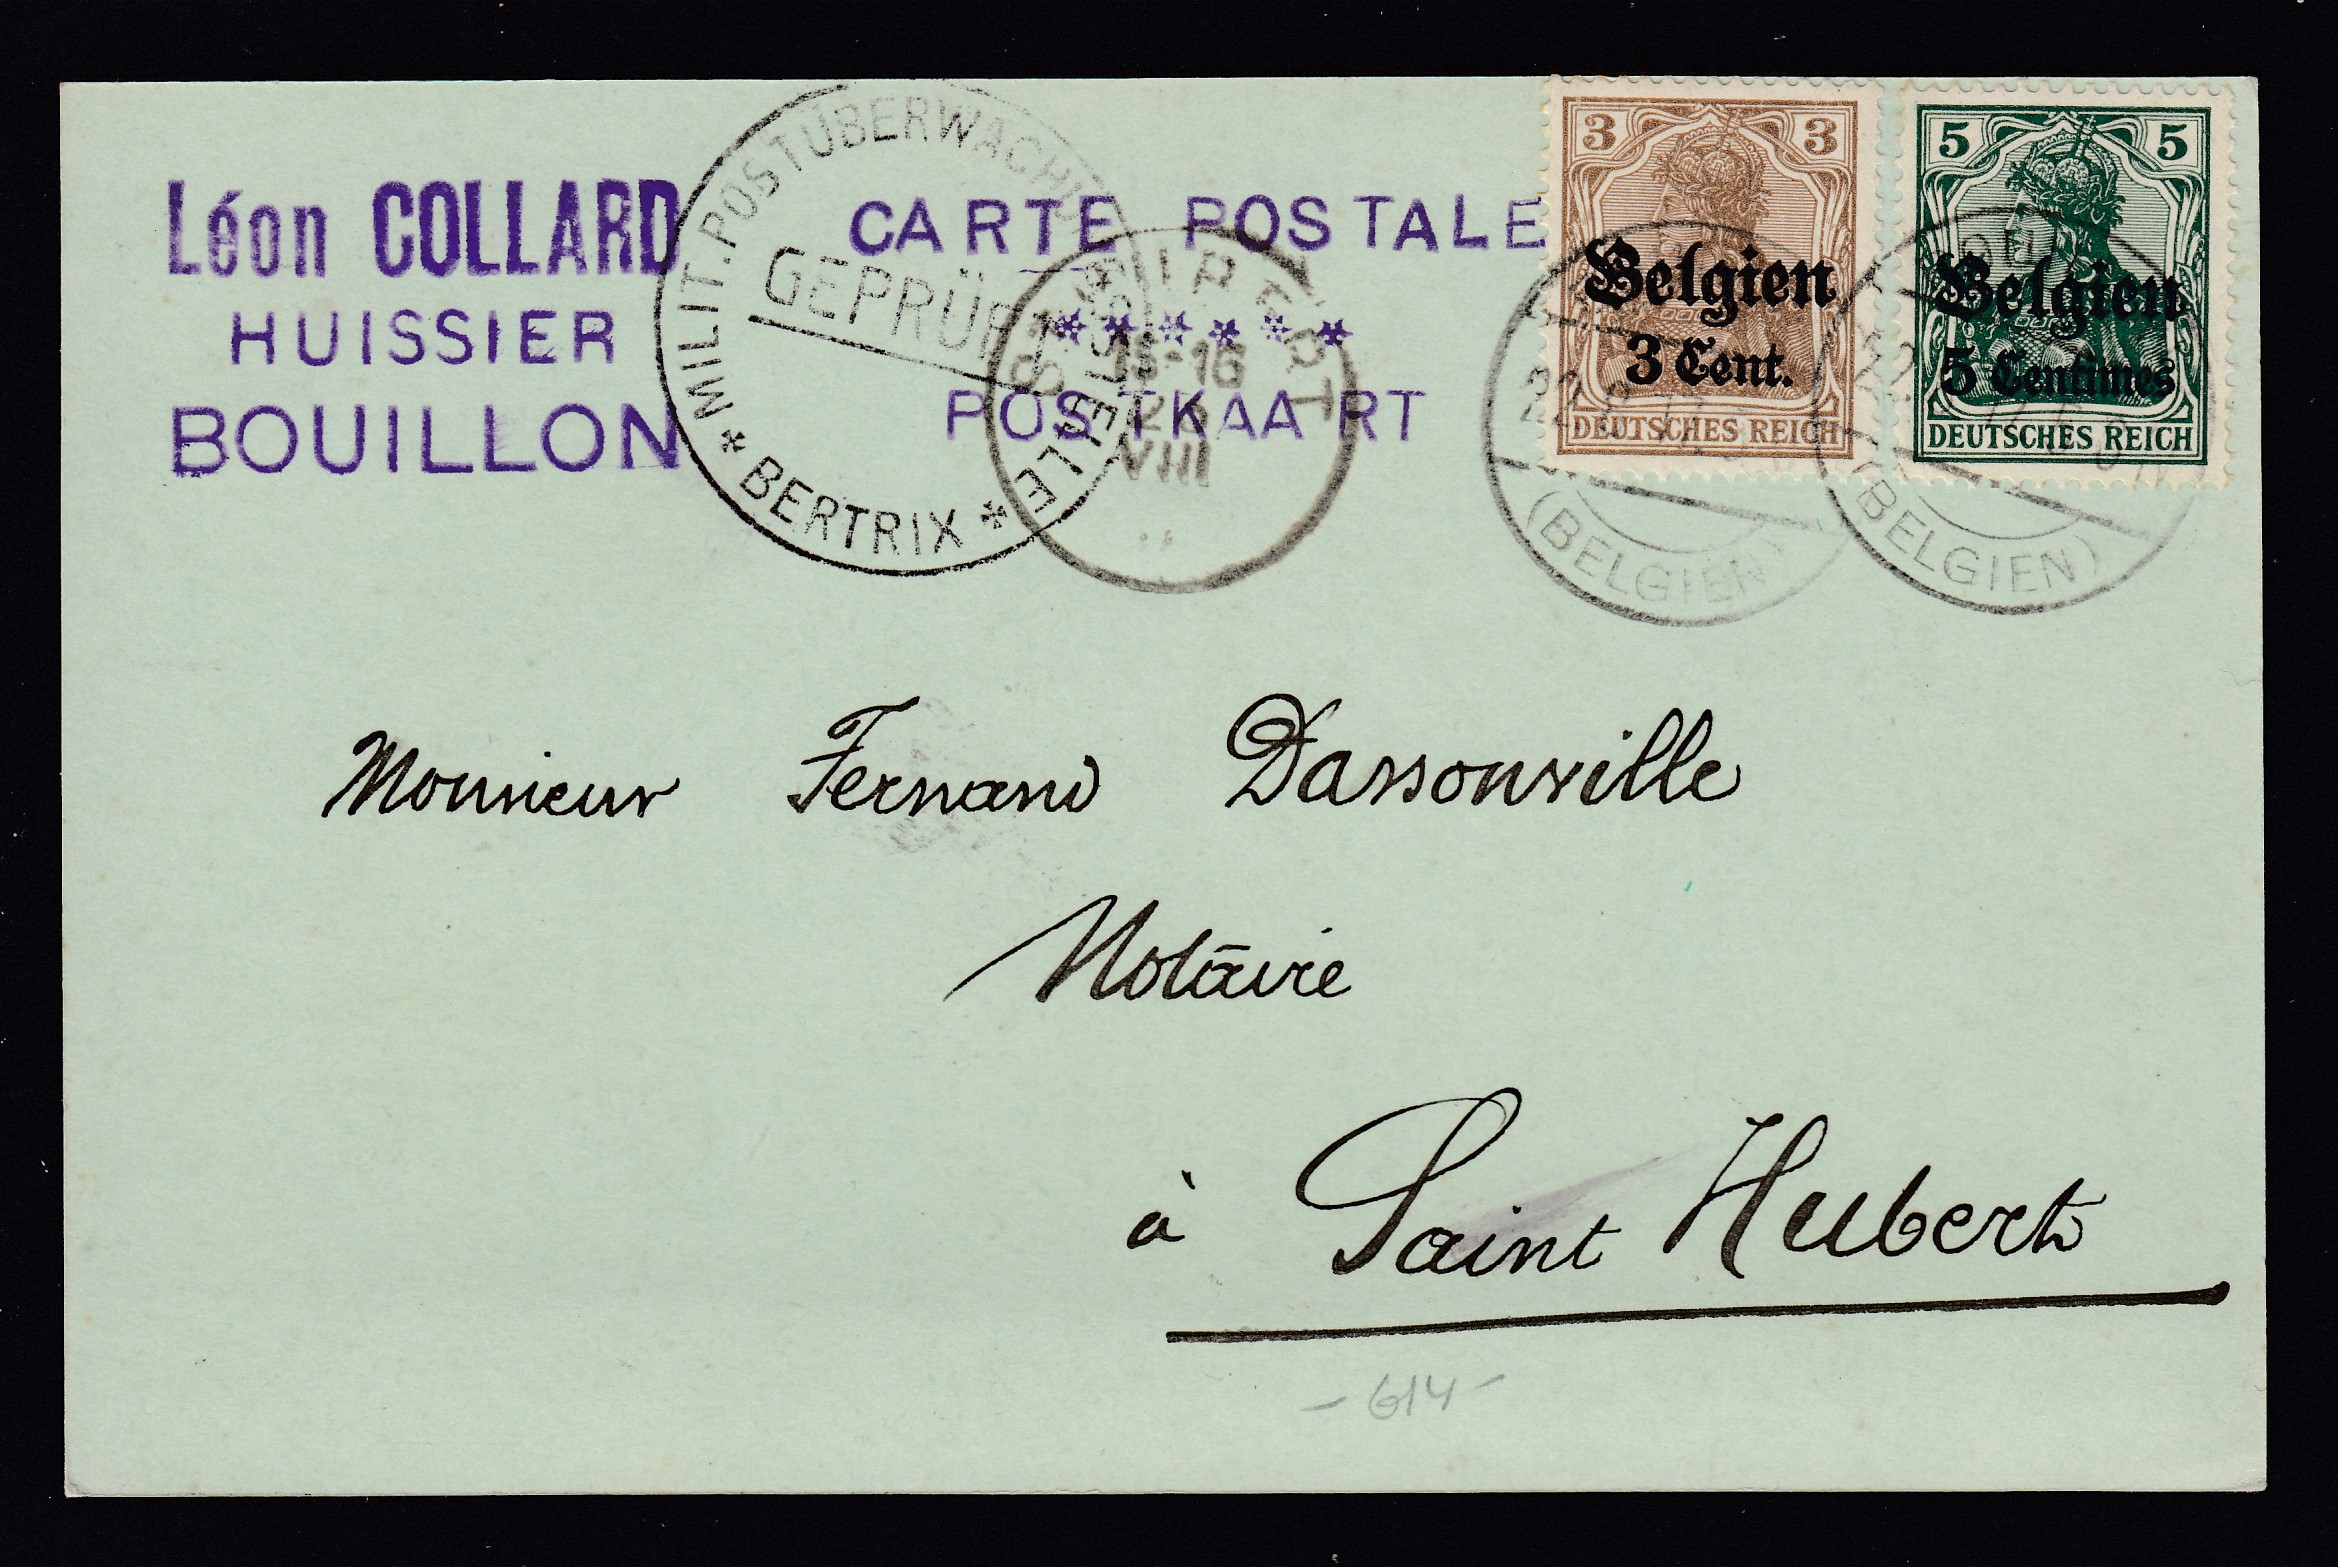 Léon COLLARD
HUISSIER
BOUILLON
CARTE POSTALE
******
POSTKAART
MILIT. POSTÜBERWACHUNGSSTELLE
* BERTRIX *
GEPRÜFT
15-16
VIII
3 3
Belgien
3 Cent.
DEUTSCHES REICH
5 5
Belgien
5 Centimes
DEUTSCHES REICH
(BELGIEN)
(BELGIEN)
Monsieur Fernand Dassonville
Notaire
à Saint Hubert
- 614 -